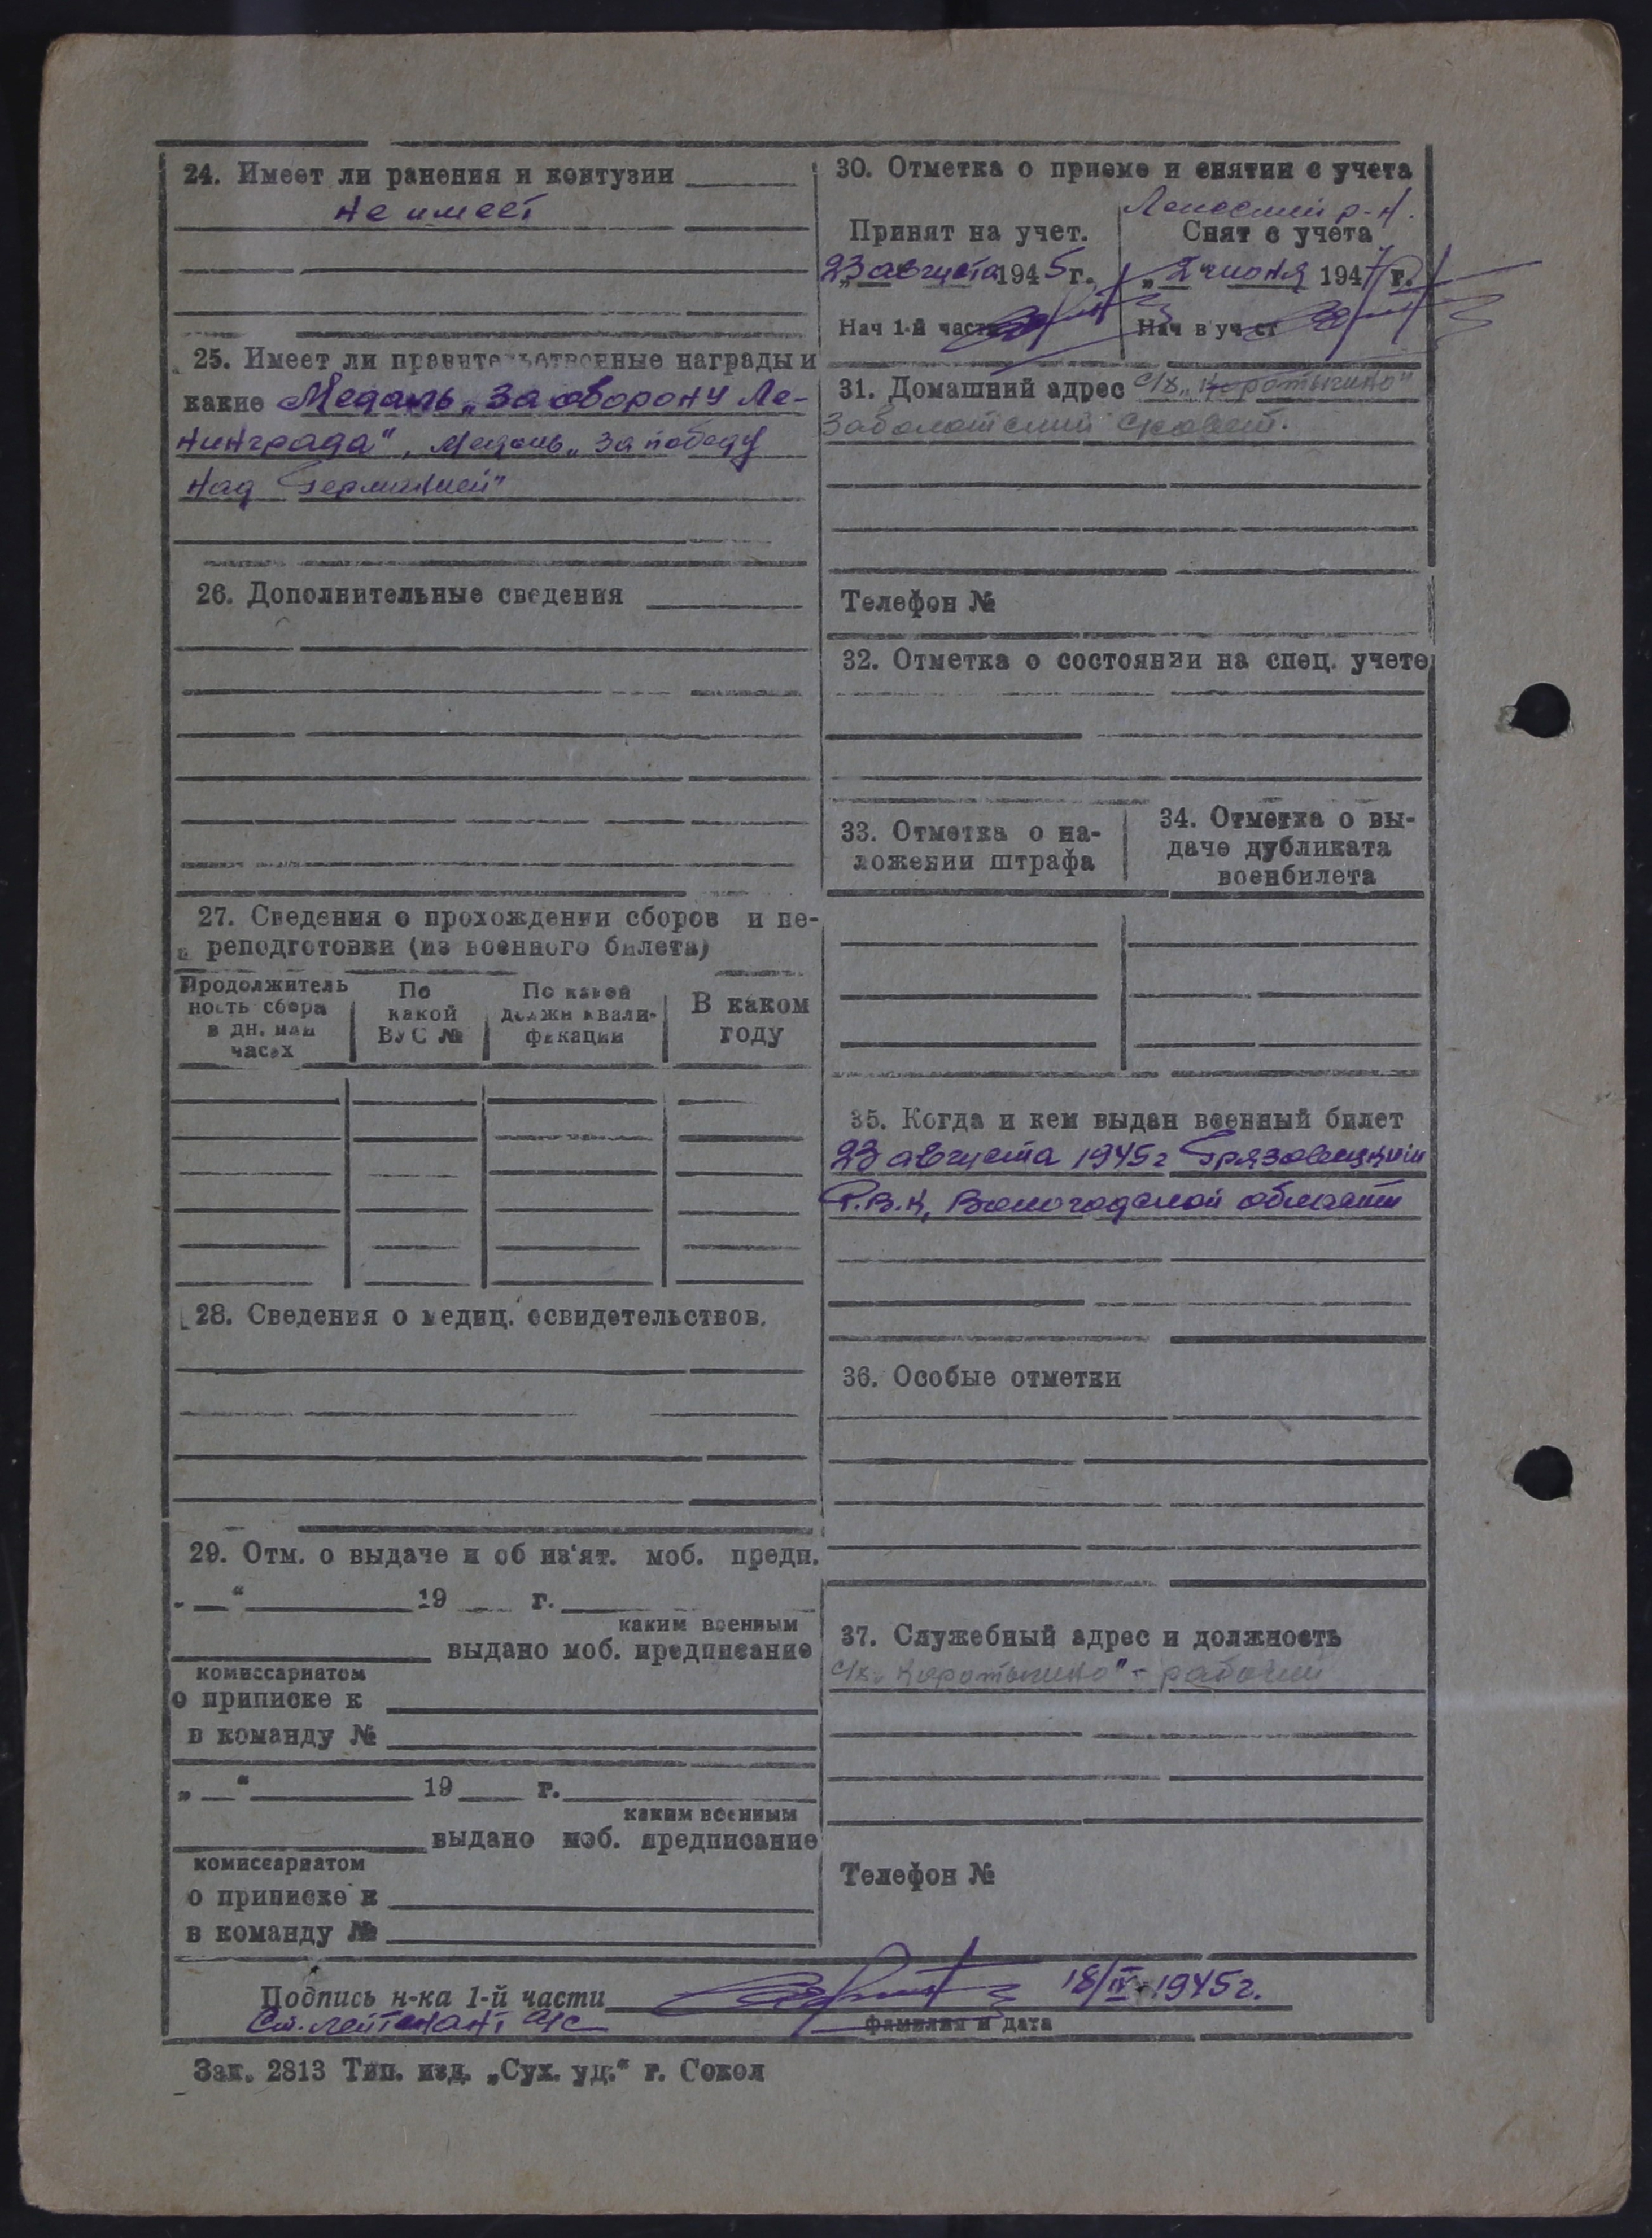 24. Имеет ли ранения и контузии
не имеет
25. Имеет ли правительственные награды и
какие Медаль „За оборону Ле-
нинграда", медаль „За победу
над Германией"
26. Дополнительные сведения
27. Сведения о прохождении сборов и пе-
реподготовки (из военного билета)
Продолжитель
ность сбора
в дн. или
часах
По
какой
ВУС №
По какой
должн квали-
фикации
В каком
году
28. Сведения о медиц. освидетельствов.
29. Отм. о выдаче и об из'ят. моб. предп.
„ “ 19 г.
каким военным
выдано моб. предписание
комиссариатом
о приписке к
в команду №
„ “ 19 г.
каким военным
выдано моб. предписание
комиссариатом
о приписке к
в команду №
30. Отметка о приеме и снятии с учета
р-н.
Принят на учет.
23 августа 1945 г.
Нач 1-й части
Снят с учета
„2 июня 1947 г.
Нач в уч ст
31. Домашний адрес с/х „Коротыгино"
Заболотский с/совет.
Телефон №
32. Отметка о состоянии на спец. учете
33. Отметка о на-
ложении штрафа
34. Отметка о вы-
даче дубликата
военбилета
35. Когда и кем выдан военный билет
23 августа 1945 г Грязовецким
Р.В.К, Вологодской области
36. Особые отметки
37. Служебный адрес и должность
с/х „Коротыгино" - рабочий
Телефон №
Подпись н-ка 1-й части 18/IX-1945 г.
Ст. лейтенант а/с
фамилия и дата
Зак. 2813 Тип. изд. „Сух. уд.“ г. Сокол